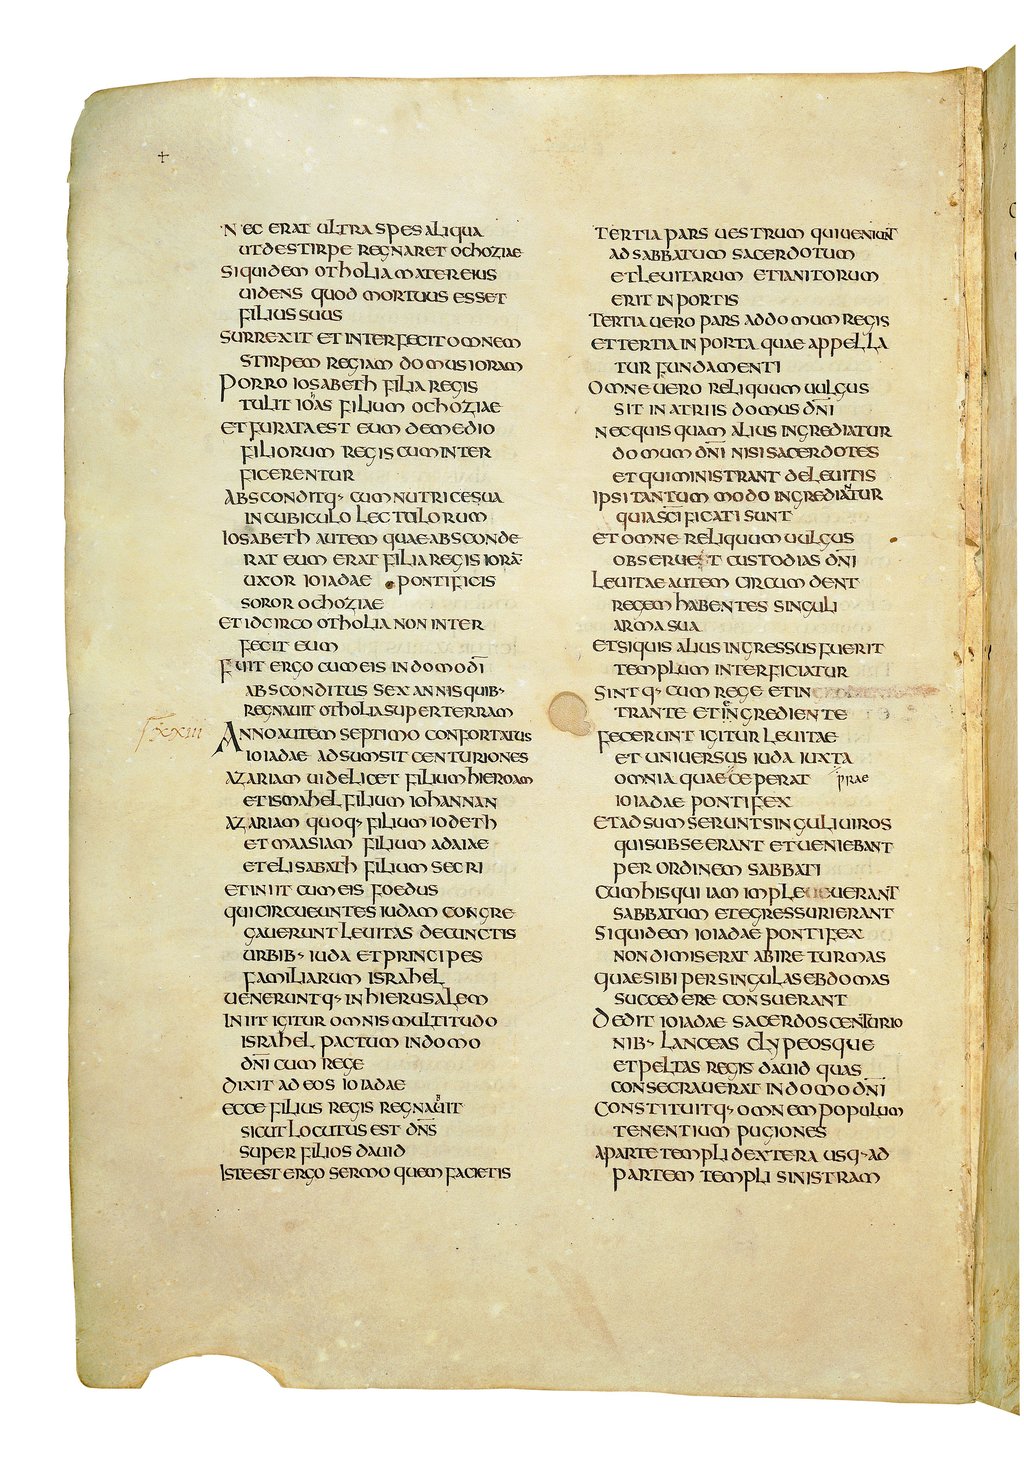 +
NEC ERAT ULTRA SPES ALIQUA
UT DE STIRPE REGNARET OCHOZIAE
SIQUIDEM OTHOLIA MATER EIUS
UIDENS QUOD MORTUUS ESSET
FILIUS SUUS
SURREXIT ET INTERFECIT OMNEM
STIRPEM REGIAM DOMUS IORAM
PORRO IOSABETH FILIA REGIS
TULIT IOAS FILIUM OCHOZIAE
ET FURATA EST EUM DE MEDIO
FILIORUM REGIS CUM INTER
FICERENTUR
ABSCONDITQ· CUM NUTRICE SUA
IN CUBICULO LECTULORUM
IOSABETH AUTEM QUAE ABSCONDE
RAT EUM ERAT FILIA REGIS IORĀ
UXOR IOIADAE PONTIFICIS
SOROR OCHOZIAE
ET IDCIRCO OTHOLIA NON INTER
FECIT EUM
FUIT ERGO CUM EIS IN DOMO DĪ
ABSCONDITUS SEX ANNIS QUIB·
REGNAUIT OTHOLIA SUPER TERRAM
xxiii
ANNO AUTEM SEPTIMO CONFORTATUS
IOIADAE ADSUMSIT CENTURIONES
AZARIAM UIDELICET FILIUM HIEROAM
ET ISMAHEL FILIUM IOHANNAN
AZARIAM QUOQ· FILIUM IODETH
ET MAASIAM FILIUM ADAIAE
ET ELISABATH FILIUM SECRI
ET INIIT CUM EIS FOEDUS
QUI CIRCUEUNTES IUDAM CONGRE
GAUERUNT LEUITAS DE CUNCTIS
URBIB· IUDA ET PRINCIPES
FAMILIARUM ISRAHEL
UENERUNTQ· IN HIERUSALEM
INIIT IGITUR OMNIS MULTITUDO
ISRAHEL PACTUM IN DOMO
DN̄I CUM REGE
DIXIT AD EOS IOIADAE
ECCE FILIUS REGIS REGNAUIT
SICUT LOCUTUS EST DN̄S
SUPER FILIOS DAUID
ISTE EST ERGO SERMO QUEM FACIETIS
TERTIA PARS UESTRUM QUI UENIUNT
AD SABBATUM SACERDOTUM
ET LEUITARUM ET IANITORUM
ERIT IN PORTIS
TERTIA UERO PARS AD DOMUM REGIS
ET TERTIA IN PORTA QUAE APPELLA
TUR FUNDAMENTI
OMNE UERO RELIQUUM UULGUS
SIT IN ATRIIS DOMUS DN̄I
NEC QUISQUAM ALIUS INGREDIATUR
DOMUM DN̄I NISI SACERDOTES
ET QUI MINISTRANT DE LEUITIS
IPSI TANTUM MODO INGREDIANTUR
QUIA SC̄IFICATI SUNT
ET OMNE RELIQUUM UULGUS
OBSERUET CUSTODIAS DN̄I
LEUITAE AUTEM CIRCUMDENT
REGEM HABENTES SINGULI
ARMA SUA
ET SIQUIS ALIUS INGRESSUS FUERIT
TEMPLUM INTERFICIATUR
SINTQ· CUM REGE ET IN
TRANTE ET INGREDIENTE
FECERUNT IGITUR LEUITAE
ET UNIUERSUS IUDA IUXTA
OMNIA QUAE CEPERAT PRAE
IOIADAE PONTIFEX
ET ADSUMSERUNT SINGULI UIROS
QUI SUBSEERANT ET UENIEBANT
PER ORDINEM SABBATI
CUM HIS QUI IAM IMPLEUERANT
SABBATUM ET EGRESSURI ERANT
SIQUIDEM IOIADAE PONTIFEX
NON DIMISERAT ABIRE TURMAS
QUAE SIBI PER SINGULAS EBDOMAS
SUCCEDERE CONSUERANT
DEDIT IOIADAE SACERDOS CENTURIO
NIB· LANCEAS CLYPEOSQUE
ET PELTAS REGIS DAUID QUAS
CONSECRAUERAT IN DOMO DN̄I
CONSTITUITQ· OMNEM POPULUM
TENENTIUM PUGIONES
A PARTE TEMPLI DEXTERA USQ· AD
PARTEM TEMPLI SINISTRAM